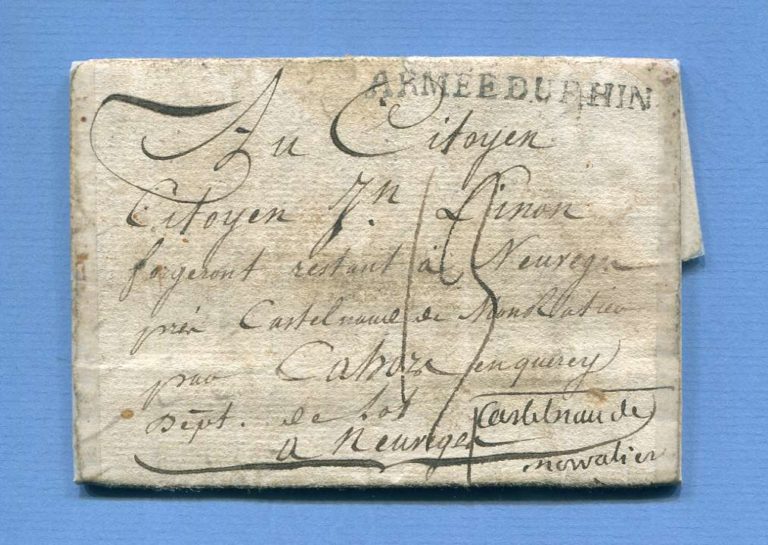 ARMEE DU RHIN
Au Citoyen
Citoyen Jn Linon
forgeront restant à Neurege
prés Castelnaud de Monratier
par Cahors enquercy
Dépt. de Lot
a Neurege
Castelnau de
monratier